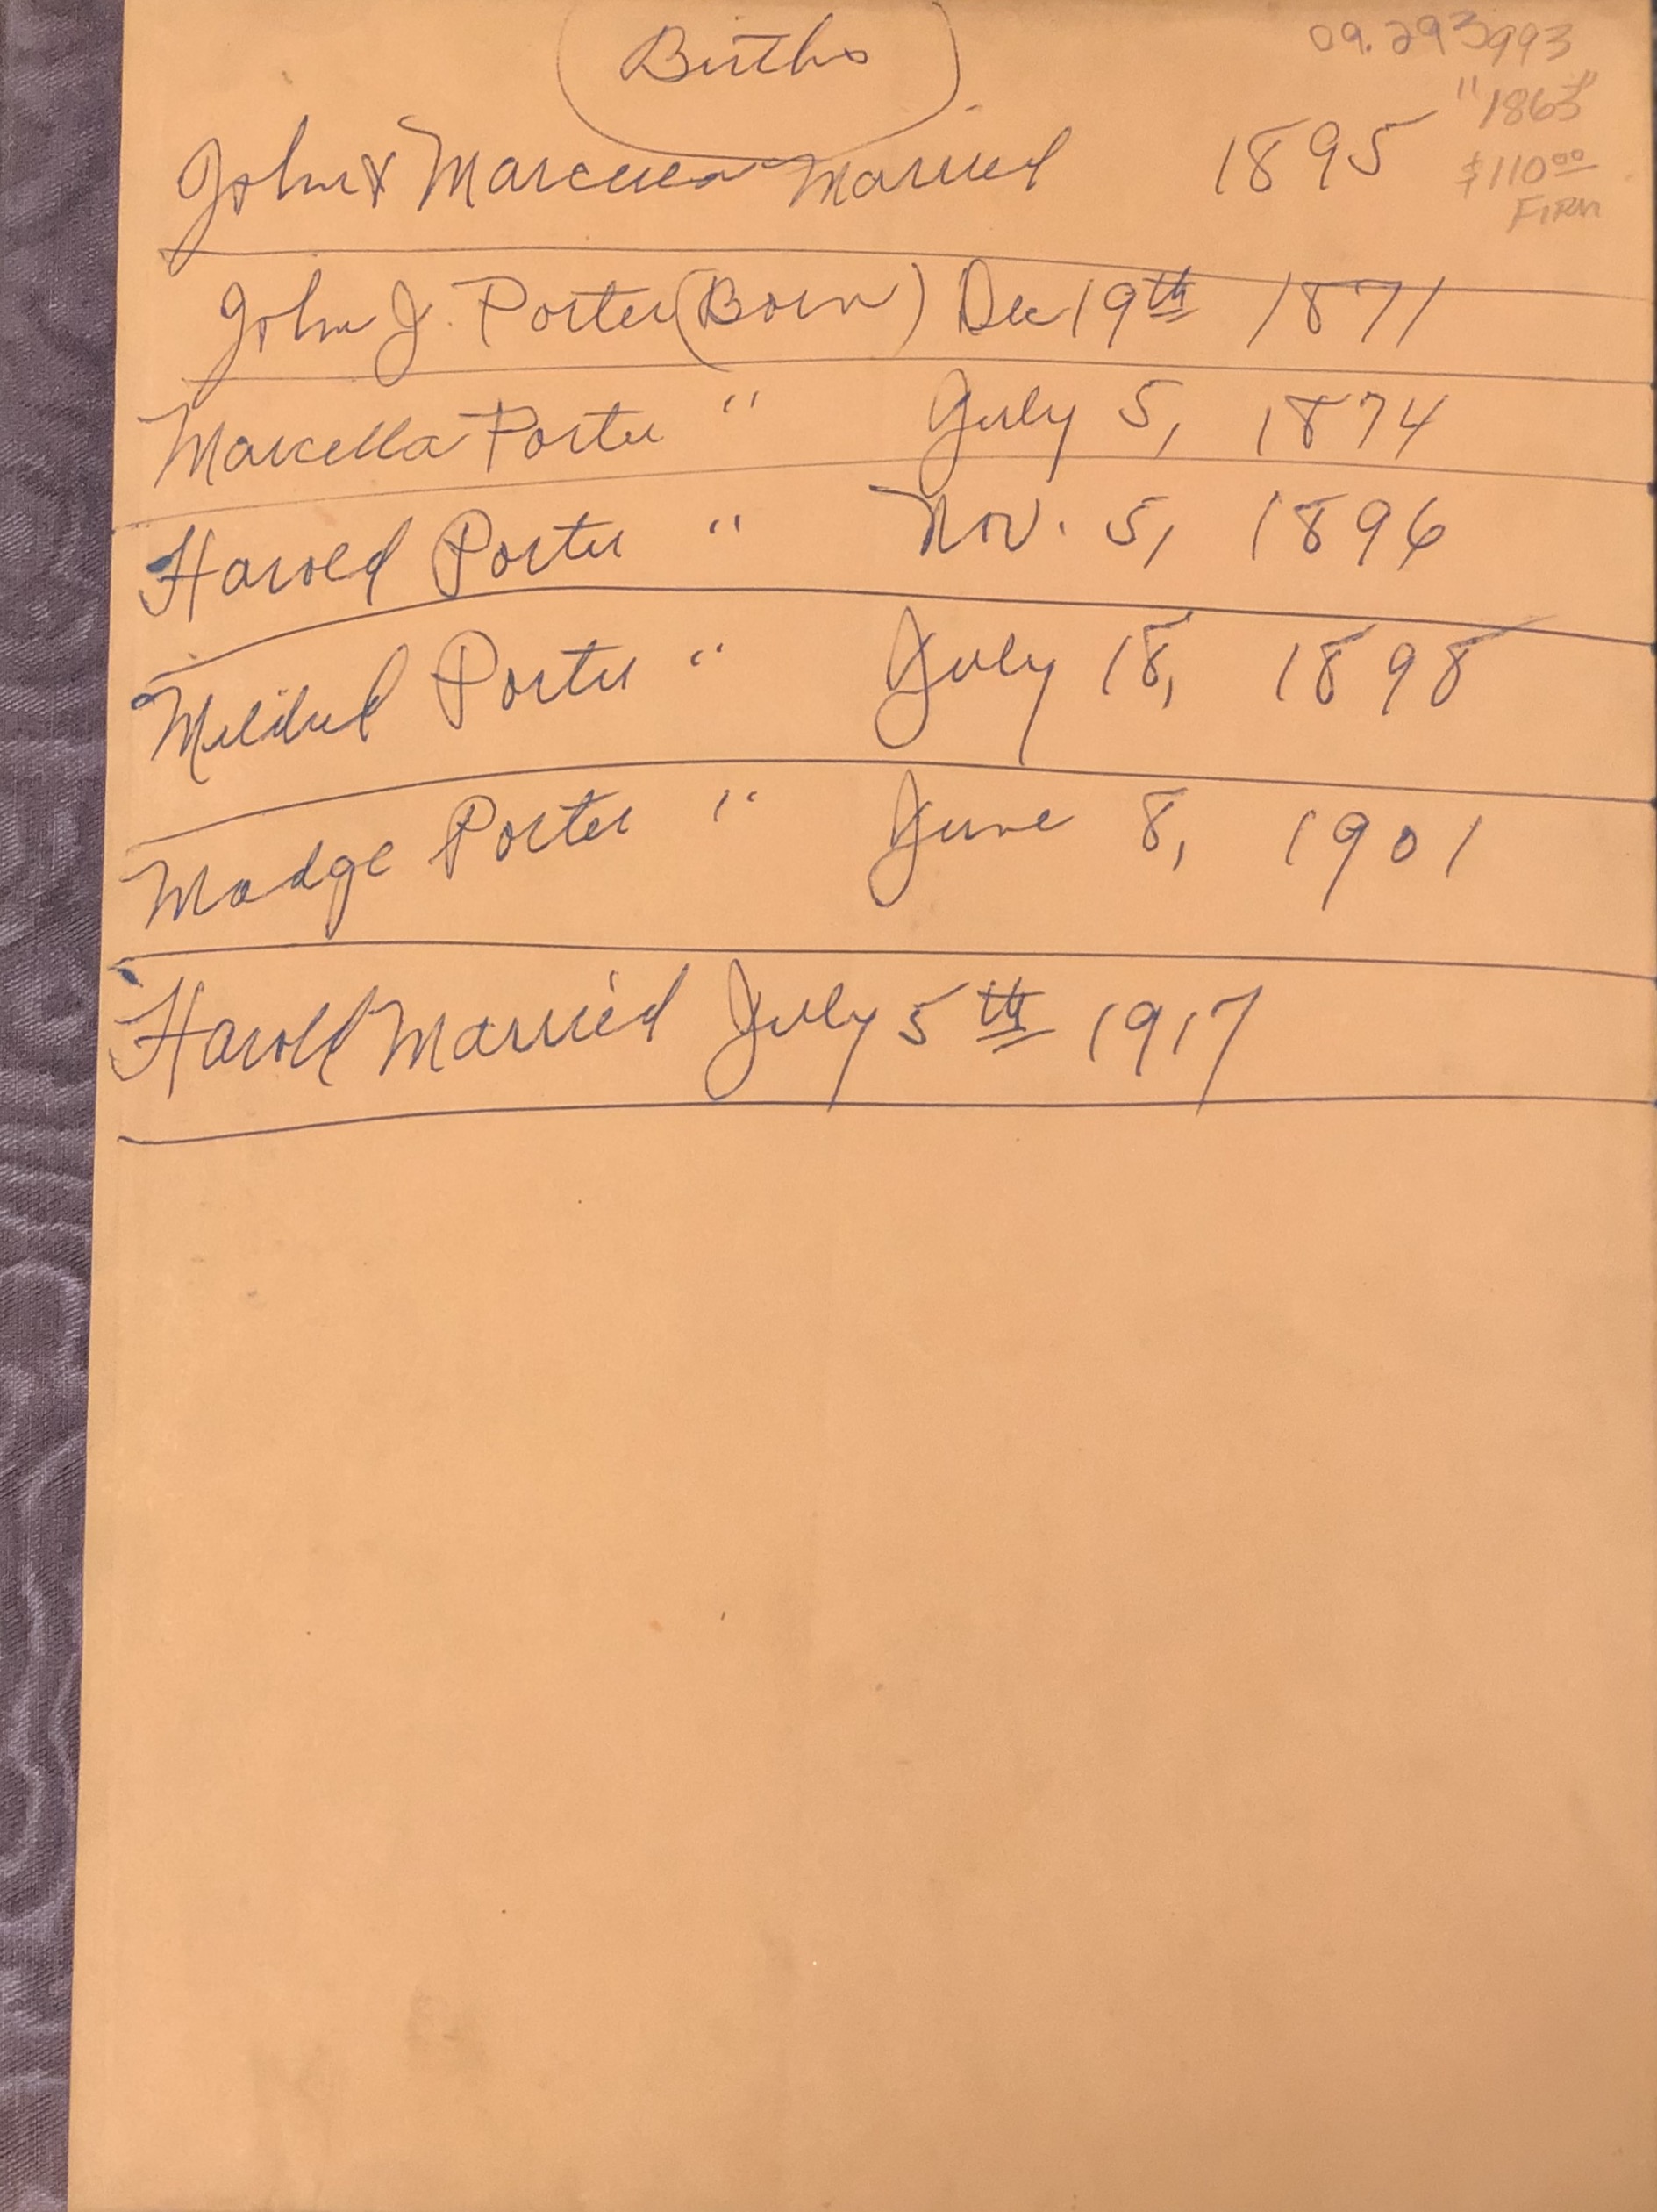 Births
09.293993
"1863"
$110.00
FIRM
John & Marcella Married 1895
John J. Porter (Born) Dec 19th 1871
Marcella Porter " July 5, 1874
Harold Porter " Nov. 5, 1896
Mildred Porter " July 18, 1898
Madge Porter " June 8, 1901
Harold Married July 5th 1917